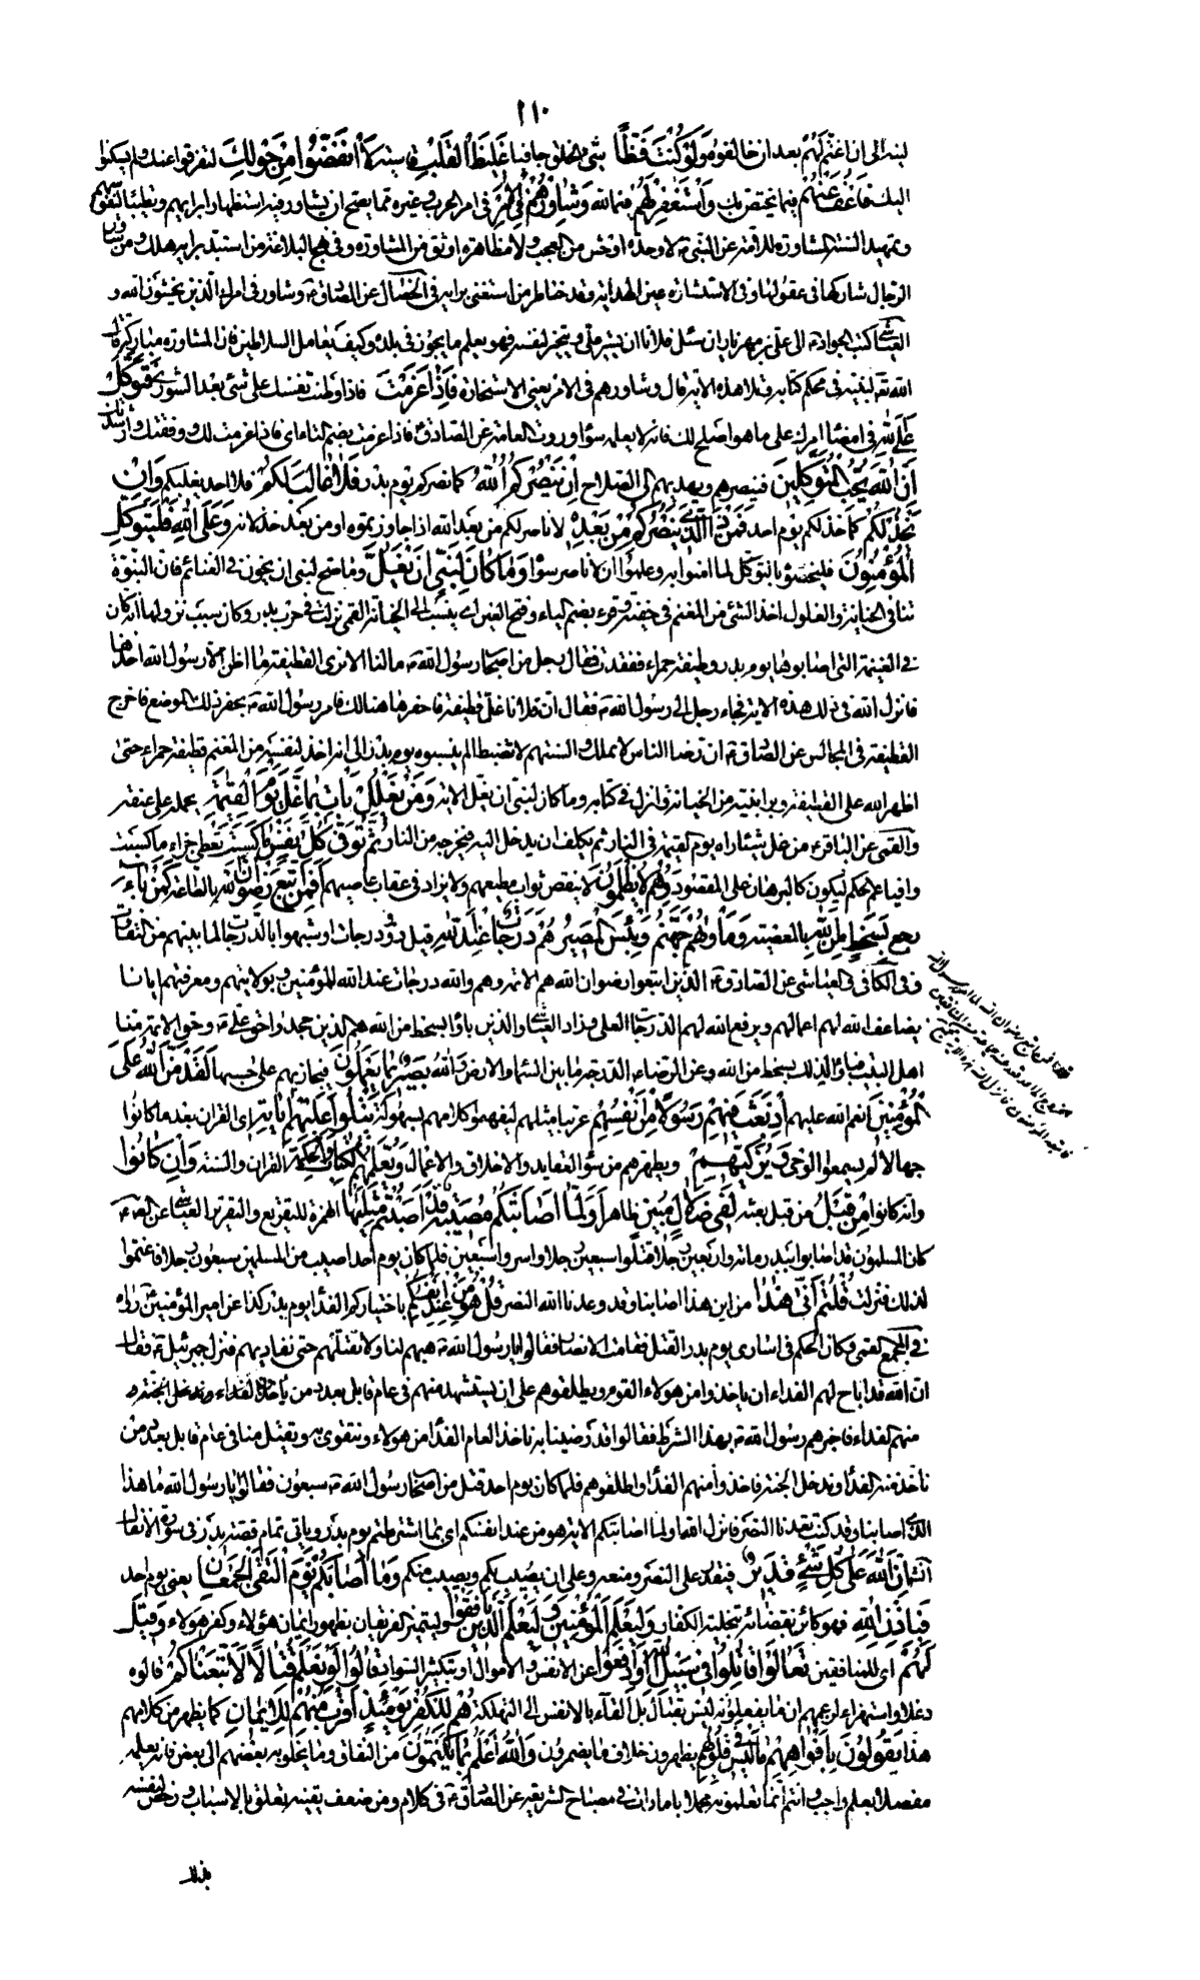 ٢١٠
لينه الى ان اغتم لهم بعد ان خالفوه وَلَوْ كُنْتَ فَظًّا سيئ الخلق جافيا غَلِيظَ الْقَلْبِ قاسيه لَانْفَضُّوا مِنْ حَوْلِكَ لتفرقوا عنك ولم يسكنوا
اليك فَاعْفُ عَنْهُمْ فيما يختص بك وَاسْتَغْفِرْ لَهُمْ فيما لله وَشَاوِرْهُمْ فِي الْأَمْرِ في امر الحرب وغيره مما يصح ان يشاور فيه استظهارا برايهم وتطييبا لنفوسهم
وتمهيدا لسنة المشاورة للامة عن النبي ص لا وحدة اوحش من العجب ولا مظاهرة اوثق من المشاورة وفي نهج البلاغة من استبد برايه هلك ومن شاور
الرجال شاركها في عقولها وفي الاستشارة عين الهداية وقد خاطر من استغنى برايه في الخصال عن الصادق ع وشاور في امرك الذين يخشون الله و
العياشي كتب الجواد ع الى علي بن مهزيار ان سئل فلانا ان يشير علي ويتخير لنفسه فهو يعلم ما يجوز في بلده وكيف يعامل السلاطين فان المشاورة مباركة قال
الله تع لنبيه في محكم كتابه وتلا هذه الاية قال وشاورهم في الامر يعني الاستخارة فَإِذَا عَزَمْتَ فاذا وطنت نفسك على شئ بعد الشورى فَتَوَكَّلْ
عَلَى اللَّهِ في امضاء امرك على ما هو اصلح لك فانه لا يعلمه سواه وروت العامة عن الصادق ع فاذا عزمت بضم التاء اي فاذا عزمت لك ووفقتك وارشدتك
إِنَّ اللَّهَ يُحِبُّ الْمُتَوَكِّلِينَ فينصرهم ويهديهم الى الصلاح إِنْ يَنْصُرْكُمُ اللَّهُ كما نصركم يوم بدر فَلَا غَالِبَ لَكُمْ فلا احد يغلبكم وَإِنْ
يَخْذُلْكُمْ كما خذلكم يوم احد فَمَنْ ذَا الَّذِي يَنْصُرُكُمْ مِنْ بَعْدِهِ لا ناصر لكم من بعد الله اذا جاوزتموه او من بعد خذلانه وَعَلَى اللَّهِ فَلْيَتَوَكَّلِ
الْمُؤْمِنُونَ فليخصوه بالتوكل لما امنوا به وعلموا ان لا ناصر سواه وَمَا كَانَ لِنَبِيٍّ أَنْ يَغُلَّ وما صح لنبي ان يخون في الغنائم فان النبوة
تنافي الخيانة والغلول اخذ الشئ من المغنم في خفية وقرء بضم الياء وفتح الغين اي ينسب الى الخيانة القمي نزلت في حرب بدر وكان سبب نزولها انه كان
في الغنيمة التي اصابوها يوم بدر قطيفة حمراء ففقدت فقال رجل من اصحاب رسول الله ص ما لنا لا نرى القطيفة ما اظن الا رسول الله اخذها
فانزل الله في ذلك هذه الاية فجاء رجل الى رسول الله ص فقال ان فلانا غل قطيفة فاحفرها هنالك فامر رسول الله ص بحفر ذلك الموضع فاخرج
القطيفة في المجالس عن الصادق ع ان رضا الناس لا يملك والسنتهم لا تضبط الم ينسبوه يوم بدر الى انه اخذ لنفسه من المغنم قطيفة حمراء حتى
اظهره الله على القطيفة وبرا نبيه من الخيانة وانزل في كتابه وما كان لنبي ان يغل الاية وَمَنْ يَغْلُلْ يَأْتِ بِمَا غَلَّ يَوْمَ الْقِيمَةِ يحمله على عنقه
والقمي عن الباقر ع من غل شيئا راه يوم القيمة في النار ثم يكلف ان يدخل اليه فيخرجه من النار ثُمَّ تُوَفَّى كُلُّ نَفْسٍ مَا كَسَبَتْ تعطى جزاء ما كسبت
وافيا عم الحكم ليكون كالبرهان على المقصود وَهُمْ لَا يُظْلَمُونَ لا ينقص ثواب مطيعهم ولا يزاد في عقاب عاصيهم أَفَمَنِ اتَّبَعَ رِضْوَانَ اللَّهِ بالطاعة كَمَنْ بَاءَ
رجع بِسَخَطٍ مِنَ اللَّهِ بالمعصية وَمَأْوَاهُمْ جَهَنَّمُ وَبِئْسَ الْمَصِيرُ هُمْ دَرَجَاتٌ عِنْدَ اللَّهِ قيل ذوو درجات او شبهوا بالدرجات لما بينهم من التفاوت
وفي الكافي والعياشي عن الصادق ع الذين اتبعوا رضوان الله هم الائمة وهم والله درجات عند الله للمؤمنين وبولايتهم ومعرفتهم ايانا
يضاعف الله لهم اعمالهم ويرفع الله لهم الدرجات العلى وزاد العياشي والذين باؤا بسخط من الله هم الذين جحدوا حق علي ع وحق الائمة منا
اهل البيت فباؤا لذلك بسخط من الله وعن الرضا ع الدرجة ما بين السماء والارض وَاللَّهُ بَصِيرٌ بِمَا يَعْمَلُونَ فيجازيهم على حسبها لَقَدْ مَنَّ اللَّهُ عَلَى
الْمُؤْمِنِينَ انعم الله عليهم إِذْ بَعَثَ فِيهِمْ رَسُولًا مِنْ أَنْفُسِهِمْ عربيا مثلهم ليفهموا كلامهم بسهولة يَتْلُوا عَلَيْهِمْ آيَاتِهِ اي القران بعد ما كانوا
جهالا لم يسمعوا الوحي وَيُزَكِّيهِمْ ويطهرهم من سوء العقايد والاخلاق والاعمال وَيُعَلِّمُهُمُ الْكِتَابَ وَالْحِكْمَةَ القران والسنة وَإِنْ كَانُوا
وانه كانوا مِنْ قَبْلُ من قبل بعثه لَفِي ضَلَالٍ مُبِينٍ ظاهر أَوَلَمَّا أَصَابَتْكُمْ مُصِيبَةٌ قَدْ أَصَبْتُمْ مِثْلَيْهَا الهمزة للتقريع والتقرير العياشي عن الصادق ع
كان المسلمون قد اصابوا ببدر مائة واربعين رجلا قتلوا سبعين رجلا واسروا سبعين فلما كان يوم احد اصيب من المسلمين سبعون رجلا فاغتموا
لذلك فنزلت قُلْتُمْ أَنَّى هَذَا من اين هذا اصابنا وقد وعدنا الله النصر قُلْ هُوَ مِنْ عِنْدِ أَنْفُسِكُمْ باختياركم الفداء يوم بدر كذا عن امير المؤمنين ع رواه
في المجمع القمي وكان الحكم في اسارى يوم بدر القتل فقامت الانصار فقالوا يا رسول الله ص هبهم لنا ولا تقتلهم حتى نفاديهم فنزل جبرئيل ع فقال
ان الله قد اباح لهم الفداء ان ياخذوا من هؤلاء القوم ويطلقوهم على ان يستشهد منهم في عام قابل بعدد من ياخذون الفداء
منهم الفداء فاخبرهم رسول الله ص بهذا الشرط فقالوا قد رضينا به ناخذ العام الفداء من هؤلاء ونتقوى به ويقتل منا في عام قابل بعدد من
ناخذ منه الفداء وندخل الجنة فاخذوا منهم الفداء واطلقوهم فلما كان يوم احد قتل من اصحاب رسول الله ص سبعون فقالوا يا رسول الله ما هذا
الذي اصابنا وقد كنت تعدنا النصر فانزل الله اولما اصابتكم الاية هو من عند انفسكم اي بما اشترطتم يوم بدر وياتي تمام قصة بدر في سورة الانفال
انش إِنَّ اللَّهَ عَلَى كُلِّ شَيْءٍ قَدِيرٌ فيقدر على النصر ومنعه وعلى ان يصيب بكم ويصيب منكم وَمَا أَصَابَكُمْ يَوْمَ الْتَقَى الْجَمْعَانِ يعني يوم احد
فَبِإِذْنِ اللَّهِ فهو كائن بقضائه تخليته الكفار وَلِيَعْلَمَ الْمُؤْمِنِينَ وَلِيَعْلَمَ الَّذِينَ نَافَقُوا وليتميز الفريقان بظهور ايمان هؤلاء وكفر هؤلاء وَقِيلَ
لَهُمْ اي للمنافقين تَعَالَوْا قَاتِلُوا فِي سَبِيلِ اللَّهِ أَوِ ادْفَعُوا عن الانفس والاموال او بتكثير السواد قَالُوا لَوْ نَعْلَمُ قِتَالًا لَاتَّبَعْنَاكُمْ قالوه
دغلا واستهزاء لزعمهم ان ما يفعلونه ليس بقتال بل القاء بالانفس الى التهلكة هُمْ لِلْكُفْرِ يَوْمَئِذٍ أَقْرَبُ مِنْهُمْ لِلْإِيمَانِ كما يظهر من كلامهم
هذا يَقُولُونَ بِأَفْوَاهِهِمْ مَا لَيْسَ فِي قُلُوبِهِمْ يظهرون خلاف ما يضمرون وَاللَّهُ أَعْلَمُ بِمَا يَكْتُمُونَ من النفاق وما يخلو به بعضهم الى بعض فانه يعلمه
مفصلا بعلم واجب وانتم انما تعلمونه مجملا بامارات في مصباح الشريعة عن الصادق ع في كلام ومن ضعف يقينه تعلق بالاسباب ورخص لنفسه
بذلك